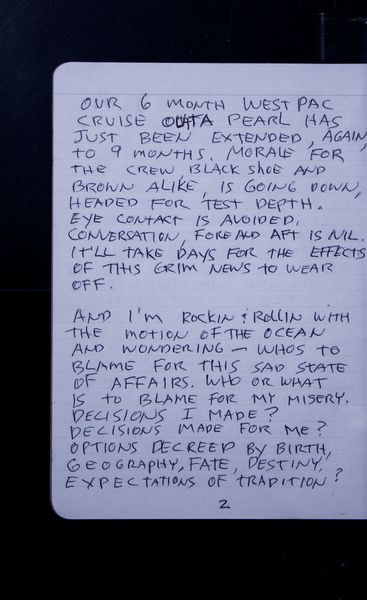 OUR 6 MONTH WESTPAC
CRUISE OUTTA PEARL HAS
JUST BEEN EXTENDED, AGAIN,
TO 9 MONTHS. MORALE FOR
THE CREW, BLACK SHOE AND
BROWN ALIKE, IS GOING DOWN,
HEADED FOR TEST DEPTH.
EYE CONTACT IS AVOIDED.
CONVERSATION, FORE AND AFT IS NIL.
IT'LL TAKE DAYS FOR THE EFFECTS
OF THIS GRIM NEWS TO WEAR
OFF.
AND I'M ROCKIN & ROLLIN WITH
THE MOTION OF THE OCEAN
AND WONDERING — WHOS TO
BLAME FOR THIS SAD STATE
OF AFFAIRS. WHO OR WHAT
IS TO BLAME FOR MY MISERY.
DECISIONS I MADE?
DECISIONS MADE FOR ME?
OPTIONS DECREED BY BIRTH,
GEOGRAPHY, FATE, DESTINY,
EXPECTATIONS OF TRADITION?
2